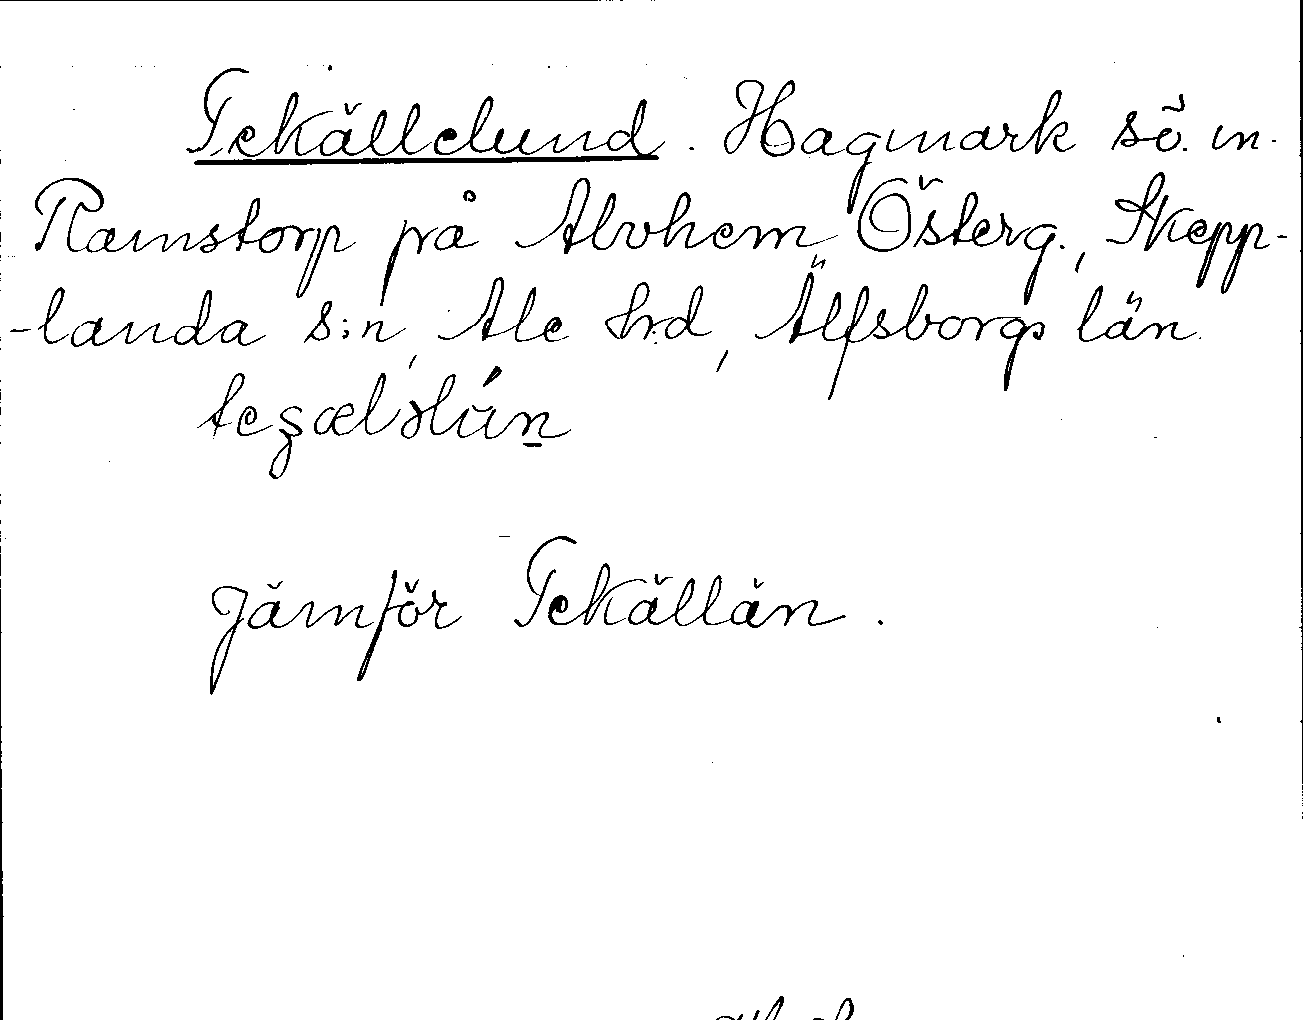 Tekällelund. Hagmark sö. m.
Ramstorp på Alvhem Österg., Skepp-
-landa s:n, Ale hrd, Älfsborgs län.
Jämför Tekällän.